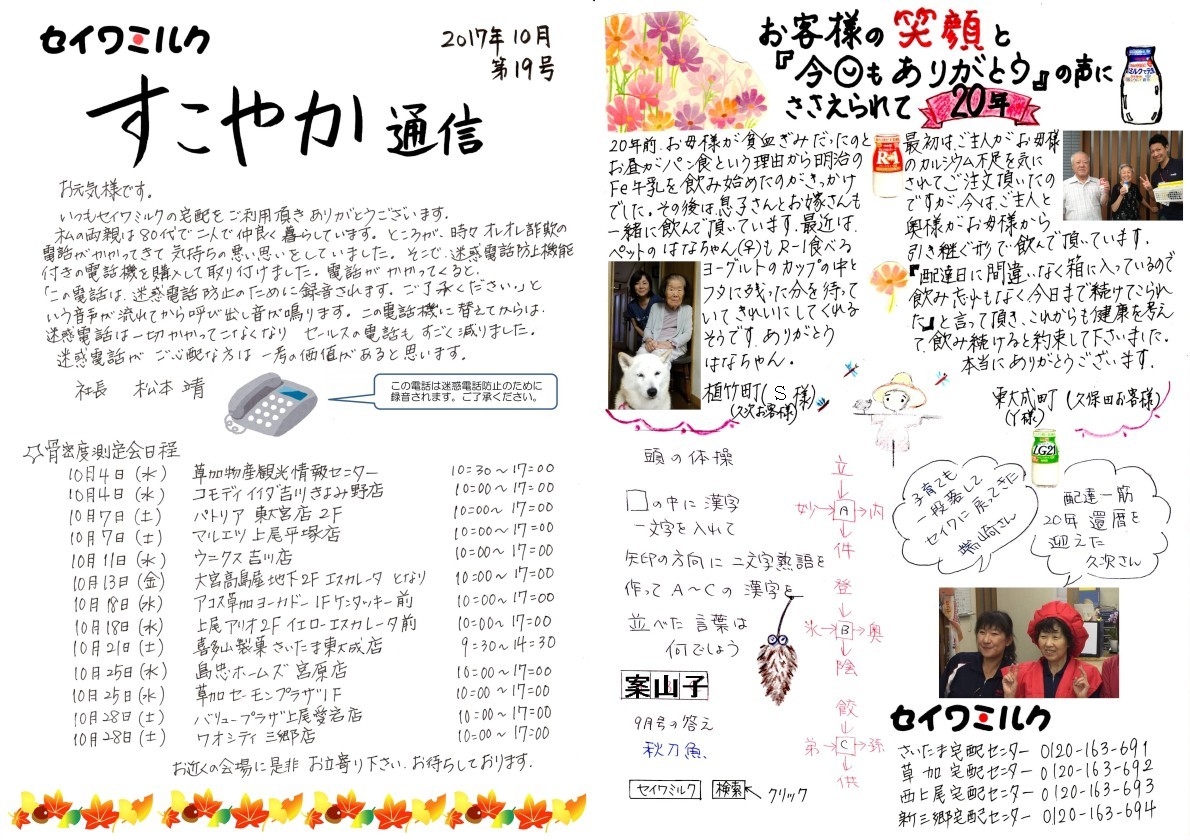 セイワミルク
2017年10月
第19号
すこやか通信
お元気様です。
いつもセイワミルクの宅配をご利用頂きありがとうございます。
私の両親は80代で二人で仲良く暮らしています。ところが、時々オレオレ詐欺の
電話がかかってきて気持ちの悪い思いをしていました。そこで、迷惑電話防止機能
付きの電話機を購入して取り付けました。電話がかかってくると、
「この電話は、迷惑電話防止のために録音されます。ご了承ください。」と
いう音声が流れてから呼び出し音が鳴ります。この電話機に替えてからは、
迷惑電話は一切かかってこなくなり セールスの電話もすごく減りました。
迷惑電話がご心配な方は一考の価値があると思います。
社長 松本靖
この電話は迷惑電話防止のために
録音されます。ご了承ください。
☆骨密度測定会日程
10月4日(水) 草加物産観光情報センター 10:30～17:00
10月4日(水) コモディイイダ吉川きよみ野店 10:00～17:00
10月7日(土) パトリア東大宮店2F 10:00～17:00
10月7日(土) マルエツ上尾平塚店 10:00～17:00
10月11日(水) ウニクス吉川店 10:00～17:00
10月13日(金) 大宮高島屋地下2Fエスカレータとなり 10:00～17:00
10月18日(水) アコス草加ヨーカドー1Fケンタッキー前 10:00～17:00
10月18日(水) 上尾アリオ2Fイエローエスカレータ前 10:00～17:00
10月21日(土) 喜多山製菓さいたま東大成店 9:30～14:30
10月25日(水) 島忠ホームズ宮原店 10:00～17:00
10月25日(水) 草加セーモンプラザ1F 10:00～17:00
10月28日(土) バリュープラザ上尾愛宕店 10:00～17:00
10月28日(土) ワオシティ三郷店 10:00～17:00
お近くの会場に是非お立寄り下さい。お待ちしております。
お客様の笑顔と
『今日もありがとう』の声に
ささえられて20年
20年前、お母様が貧血ぎみだったのと
お昼がパン食という理由から明治の
Fe牛乳を飲み始めたのがきっかけ
でした。その後は、息子さんとお嫁さんも
一緒に飲んで頂いています。最近は、
ペットのはなちゃん(♀)もR-1食べる
ヨーグルトのカップの中と
フタに残った分を待って
いてきれいにしてくれる
そうです。ありがとう
はなちゃん。
植竹町(S様)
(久次お客様)
R-1
最初は、ご主人がお母様
のカルシウム不足を気に
されてご注文頂いたの
ですが、今は、ご主人と
奥様がお母様から
引き継ぐ形で飲んで頂いています。
『配達日に間違いなく箱に入っているので
飲み忘れもなく今日まで続けてこられ
た』と言って頂き、これからも健康を考え
て、飲み続けると約束して下さいました。
本当にありがとうございます。
東大成町(久保田お客様)
(Y様)
LG21
頭の体操
□の中に漢字
一文字を入れて
矢印の方向に二文字熟語を
作ってA～Cの漢字を
並べた言葉は
何でしょう
案山子
9月号の答え
秋刀魚
立
↓
妙→A→内
↓
件
登
↓
氷→B→奥
↓
陰
餃
↓
弟→C→孫
↓
供
子育ても
一段落して
セイワに戻ってきた
配達一筋
20年還暦を
迎えた
久次さん
セイワミルク
さいたま宅配センター 0120-163-691
草加宅配センター 0120-163-692
西上尾宅配センター 0120-163-693
新三郷宅配センター 0120-163-694
セイワミルク 検索 クリック